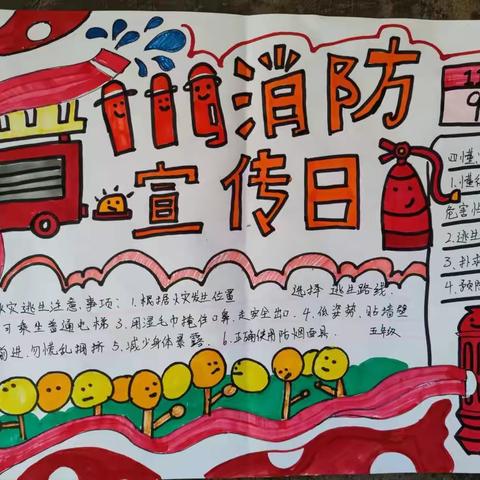 消防
宣传日
11
9
四懂
1.懂
危害性
2.逃生
3.扑
4.预防
火灾逃生注意事项：1.根据火灾发生位置 选择逃生路线.
可乘坐普通电梯 3.用湿毛巾掩住口鼻,走安全出口.4.低姿势、贴墙壁
前进,勿慌乱拥挤 5.减少身体暴露. 6.正确使用防烟面具.
五年级